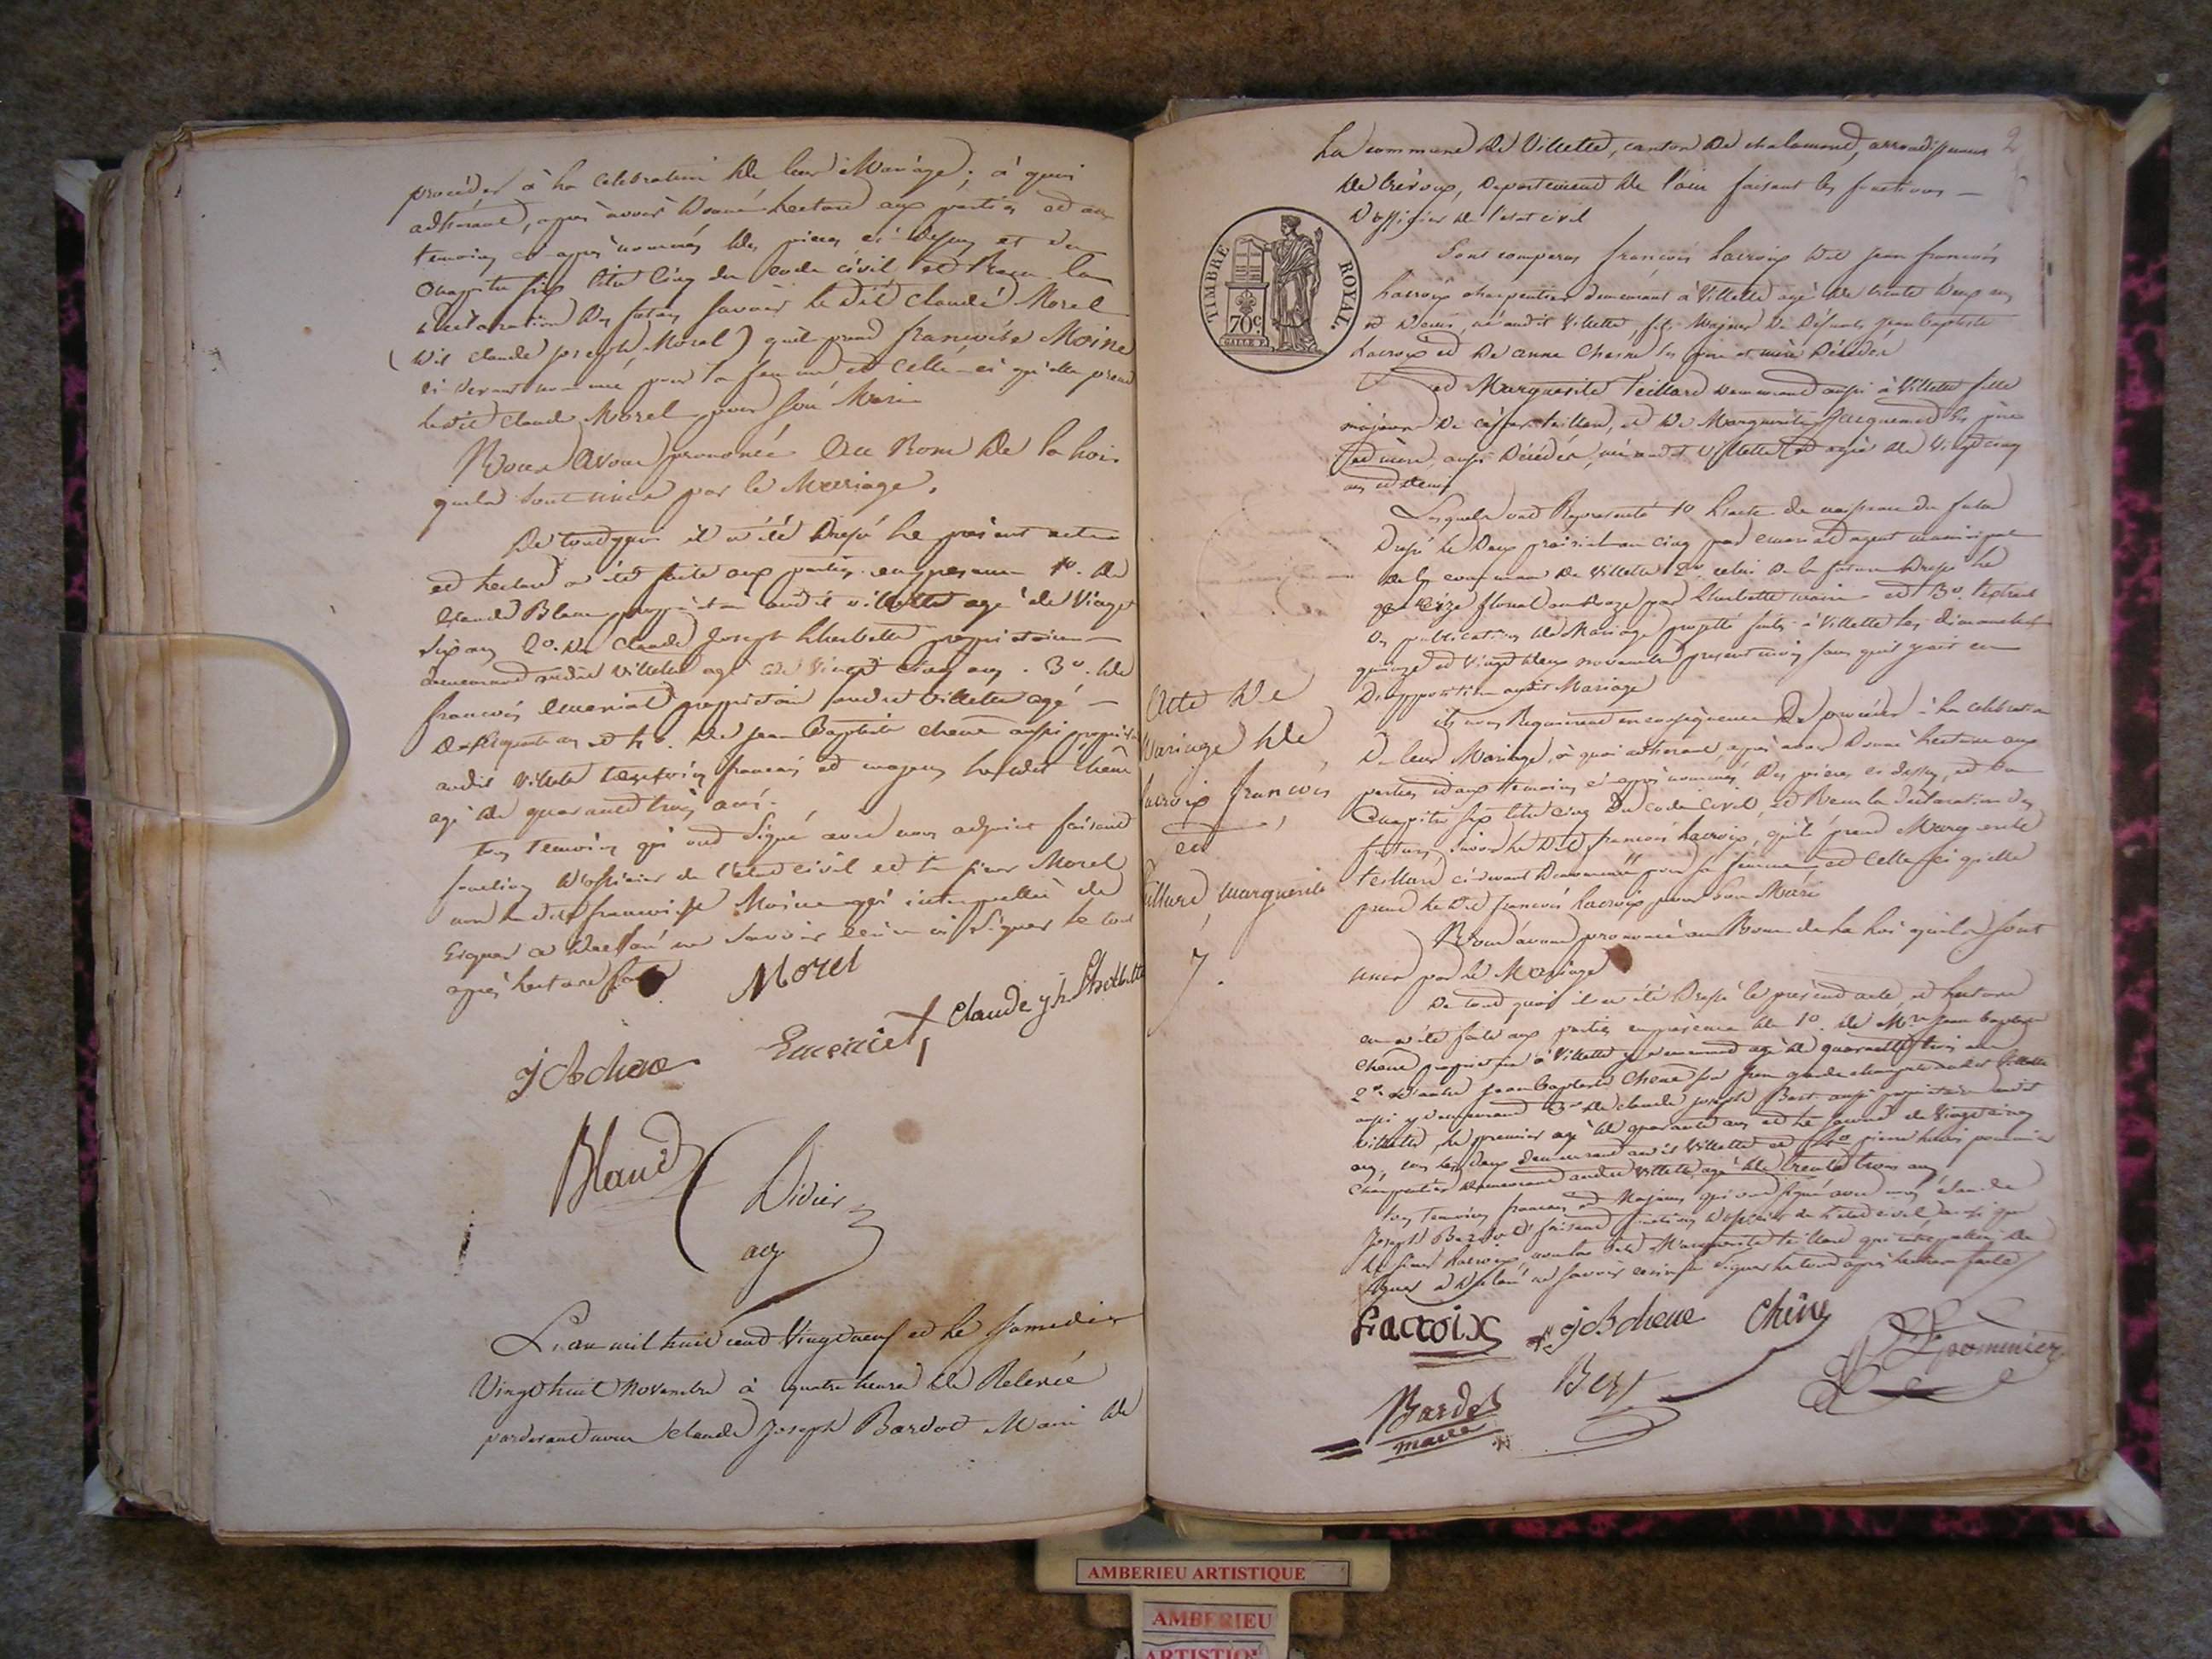 procéder à la Celebration de leur Mariage; à quoi
adhérant, après avoir donné lecture aux parties et aux
temoins ci-après nommés des pieces ci-dessus et du
Chapitre six titre Cinq du Code civil et Reçu la
déclaration des futurs savoir le dit claude Morel
(dit Claude joseph Morel) qu'il prend francoise Moine
ci devant nommé pour sa femme et celle-ci qu'elle prend
le dit Claude Morel pour son Mari
Nous Avons prononcé Au Nom De la Loi
qu'ils sont unis par le Mariage.
De tout quoi il a été Dressé le présent acte
et lecture a été faite aux parties en presence 1º. de
Claude Blanc propriétaire audit villette agé de Vingt
six ans 2º. De Claude Joseph Lherbette propriétaire
demeurant audit Villette agé de Vingt Cinq ans. 3º. de
francois Emeriat propriétaire audit Villette agé
de ans et 4º. De jean Baptiste chene aussi propriétaire
audit Villette francais et majeurs le dit Chêne
agé de quarante trois ans.
tous Temoins qui ont Signé avec nous adjoint faisant
fonction d'officier de l'état civil et le sieur Morel
non la dite francoise Moine qui interpellée de
Signer a declaré ne savoir Signer le tout
après lecture faite
Morel
JB chene Emeriat Claude jh Lherbette
Blanc Didier
adj
L'an mil huit cent Vingt neuf et le samedi
Vingt huit Novembre à quatre heures de Relevée
pardevant nous Claude Joseph Bardot Maire de
2
La commune de Villette, canton de chalamont, arrondissement
de trévoux, Departement de l'ain faisant les fonctions
D'officier de l'etat civil
TIMBRE ROYAL.
70c
Sont comparus francois Lacroix dit jean francois
Lacroix charpentier demeurant à Villette agé de trente deux ans
et demi, né audit Villette, fils Majeur De Défunts jean baptiste
Lacroix et De anne Chesne ses pere et mère Décédés
et Marguerite Teillard demeurant aussi à Villette fille
majeure De teillard, et De Marguerite Jacquemet ses père
et mère, aussi Décédés, née audit Villette et agée de Vingt cinq
ans et demi
Lesquels ont Representé 1º L'acte de naissance du futur
Dressé le Deux prairial an cinq par emeriat agent municipal
de la commune De Villette 2º. celui De la future Dressé le
floreal an douze par Lherbette maire et 3º. l'extrait
des publications de Mariage projetté faites à Villette les dimanches
quinze et Vingt deux novembre present mois sans qu'il y ait eu
D'opposition audit Mariage
Acte de
Mariage de
Lacroix francois
et
teillard marguerite
7.
ils nous Requierent en conséquence De procéder à la celebration
De leur Mariage, à quoi adherant après avoir donné lecture aux
parties et aux temoins ci-après nommés Des pieces ci dessus, et Du
Chapitre six titre cinq Du code civil, et Recu la déclaration des
futurs, savoir le dit francois Lacroix, qu'il prend Marguerite
teillard ci-devant denommée pour sa femme, et celle-ci qu'elle
prend le dit francois Lacroix pour son Mari
Nous avons prononcé au Nom de la Loi qu'ils sont
unis par le Mariage
De tout quoi il a été Dressé le présent acte, et lecture
en a été faite aux parties en présence de 1º. de Mre Jean baptiste
Chene propriétaire à Villette y demeurant agé de quarante trois ans
2º. d'autre jean baptiste Chene garde champêtre audit Villette
aussi y demeurant 3º de claude joseph Best aussi propriétaire audit
Villette, le premier agé de quarante ans et le second de Vingt cinq
ans, tous les deux demeurant audit Villette et 4º pierre pommier
Charpentier demeurant audit Villette, agé de trente trois ans
tous Temoins francais et Majeurs qui ont signé avec nous claude
Joseph Bardot faisant fonctions d'officier de l'etat civil ainsi que
le sieur Lacroix, non la dite Marguerite teillard qui interpellée de
signer a déclaré ne savoir signer le tout après lecture faite
Lacroix JB chene Chêne
Best pommier
Bardot
maire
AMBERIEU ARTISTIQUE
AMBERIEU
ARTISTIQUE